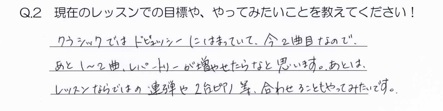 Q.2 現在のレッスンでの目標や、やってみたいことを教えてください！
クラシックではドビュッシーにはまっていて、今2曲目なので、
あと1〜2曲、レパートリーが増やせたらなと思います。あとは、
レッスンならではの連弾や2台ピアノ等、合わせることもやってみたいです。